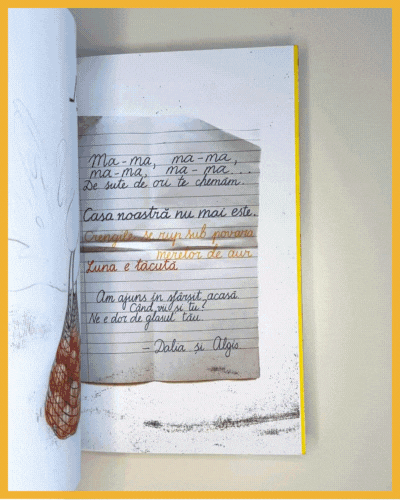 Ma-ma, ma-ma,
ma-ma, ma-ma...
De sute de ori te chemăm.
Casa noastră nu mai este.
Crengile se rup sub povara
merelor de aur.
Luna e tăcută.
Am ajuns în sfârșit acasă.
Când vii și tu?
Ne e dor de glasul tău.
– Dalia și Algis